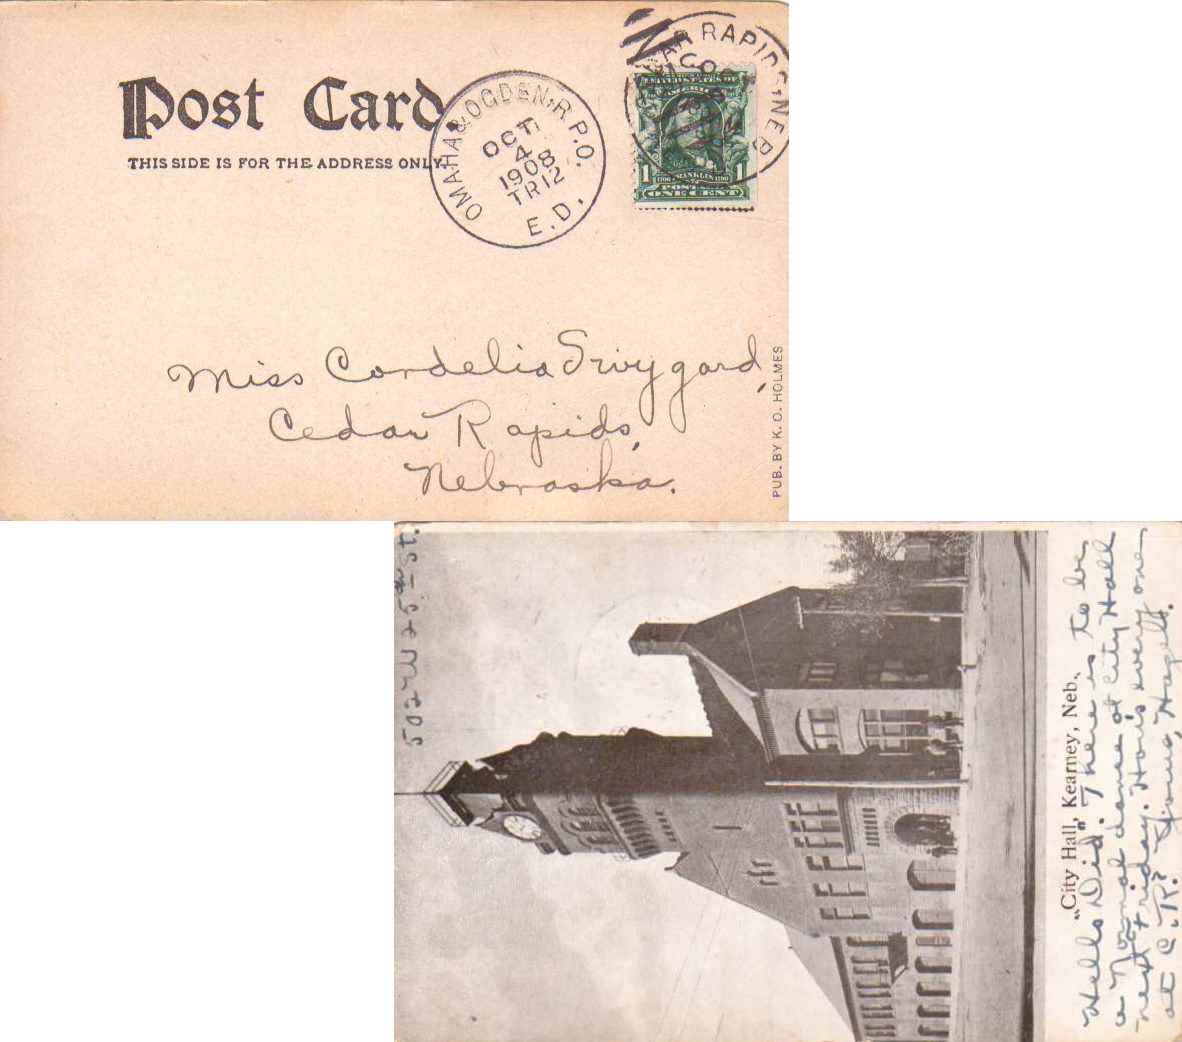 Post Card
THIS SIDE IS FOR THE ADDRESS ONLY.
OMAHA & OGDEN. R.P.O.
OCT
4
1908
TR12
E.D.
RAPIDS, NEB
1 1
POSTAGE
ONE CENT
Miss Cordelia
Cedar Rapids,
Nebraska.
PUB. BY K. O. HOLMES
502 W 25th St.
City Hall, Kearney, Neb.
"Hello Did." There is to be
a Normal dance at City Hall
next Friday. How is every one
at C.R.? Yours, Hazel.